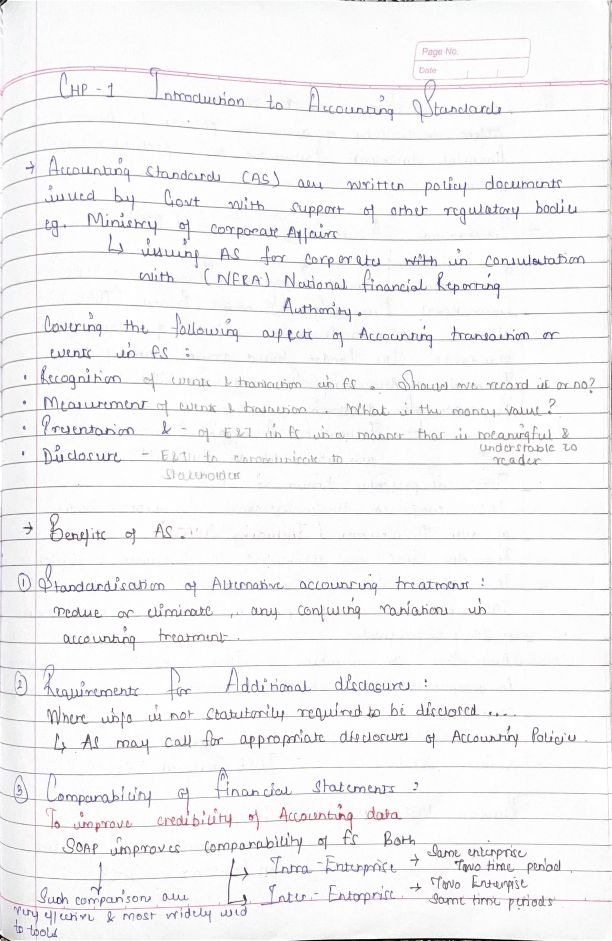 Page No.
Date
CHP - 1 Introduction to Accounting Standards
→ Accounting Standards (AS) are written policy documents
issued by Govt with support of other regulatory bodies
eg. Ministry of corporate Affairs
↳ issuing AS for corporates with in consultation
with (NFRA) National financial Reporting
Authority.
Covering the following aspects of Accounting transaction or
events in FS :
• Recognition of events & transaction in FS. Should we record it or no?
• Measurement of events & transaction. What is the money value?
• Presentation & - of E&T in FS in a manner that is meaningful &
understable to
reader
• Disclosure - E&T to communicate to
Stakeholders
→ Benefits of AS.
① Standardisation of Alternative accounting treatments :
reduce or eliminate, any confusing variations in
accounting treatment.
② Requirements for Additional disclosures :
Where info is not statutorily required to be disclosed ....
↳ AS may call for appropriate disclosures of Accounting Policies.
③ Comparability of Financial Statements :
To improve credibility of Accounting data
SOAP improves comparability of FS Both
↳ Intra-Enterprise → Same enterprise
Two time period.
↳ Inter-Enterprise → Two Enterpise
Same time periods
Such comparisons are
very effective & most widely used
to tools